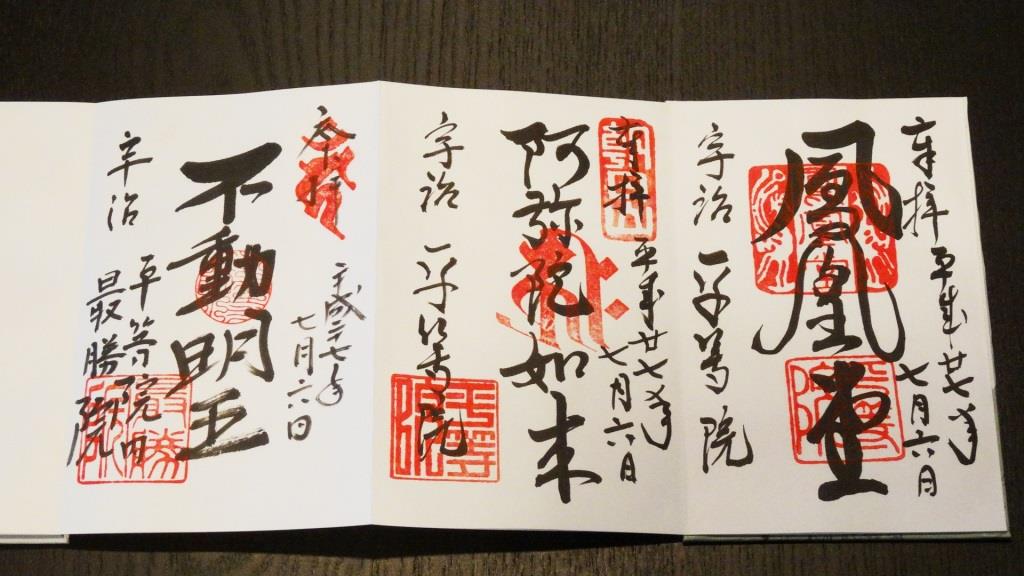 奉拝
平成廿七年
七月六日
鳳凰堂
宇治 平等院
奉拝
平成廿七年
七月六日
阿弥陀如来
宇治 平等院
平等院
奉拝
平成二七年
七月六日
不動明王
宇治
平等院内
最勝院